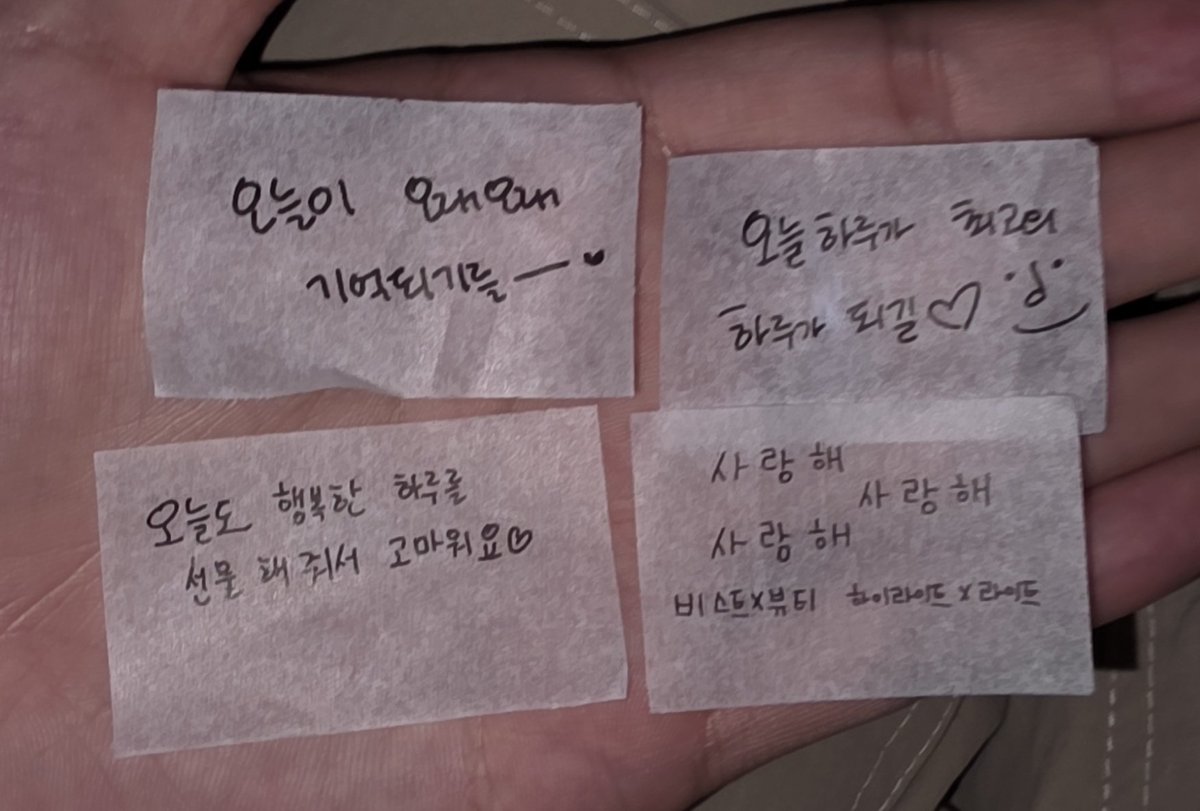 오늘이 오래오래
기억되기를 ㅡ♥
오늘 하루가 최고의
하루가 되길♡
오늘도 행복한 하루를
선물 해줘서 고마워요♡
사랑해
사랑해
사랑해
비스트x뷰티 하이라이트x라이트